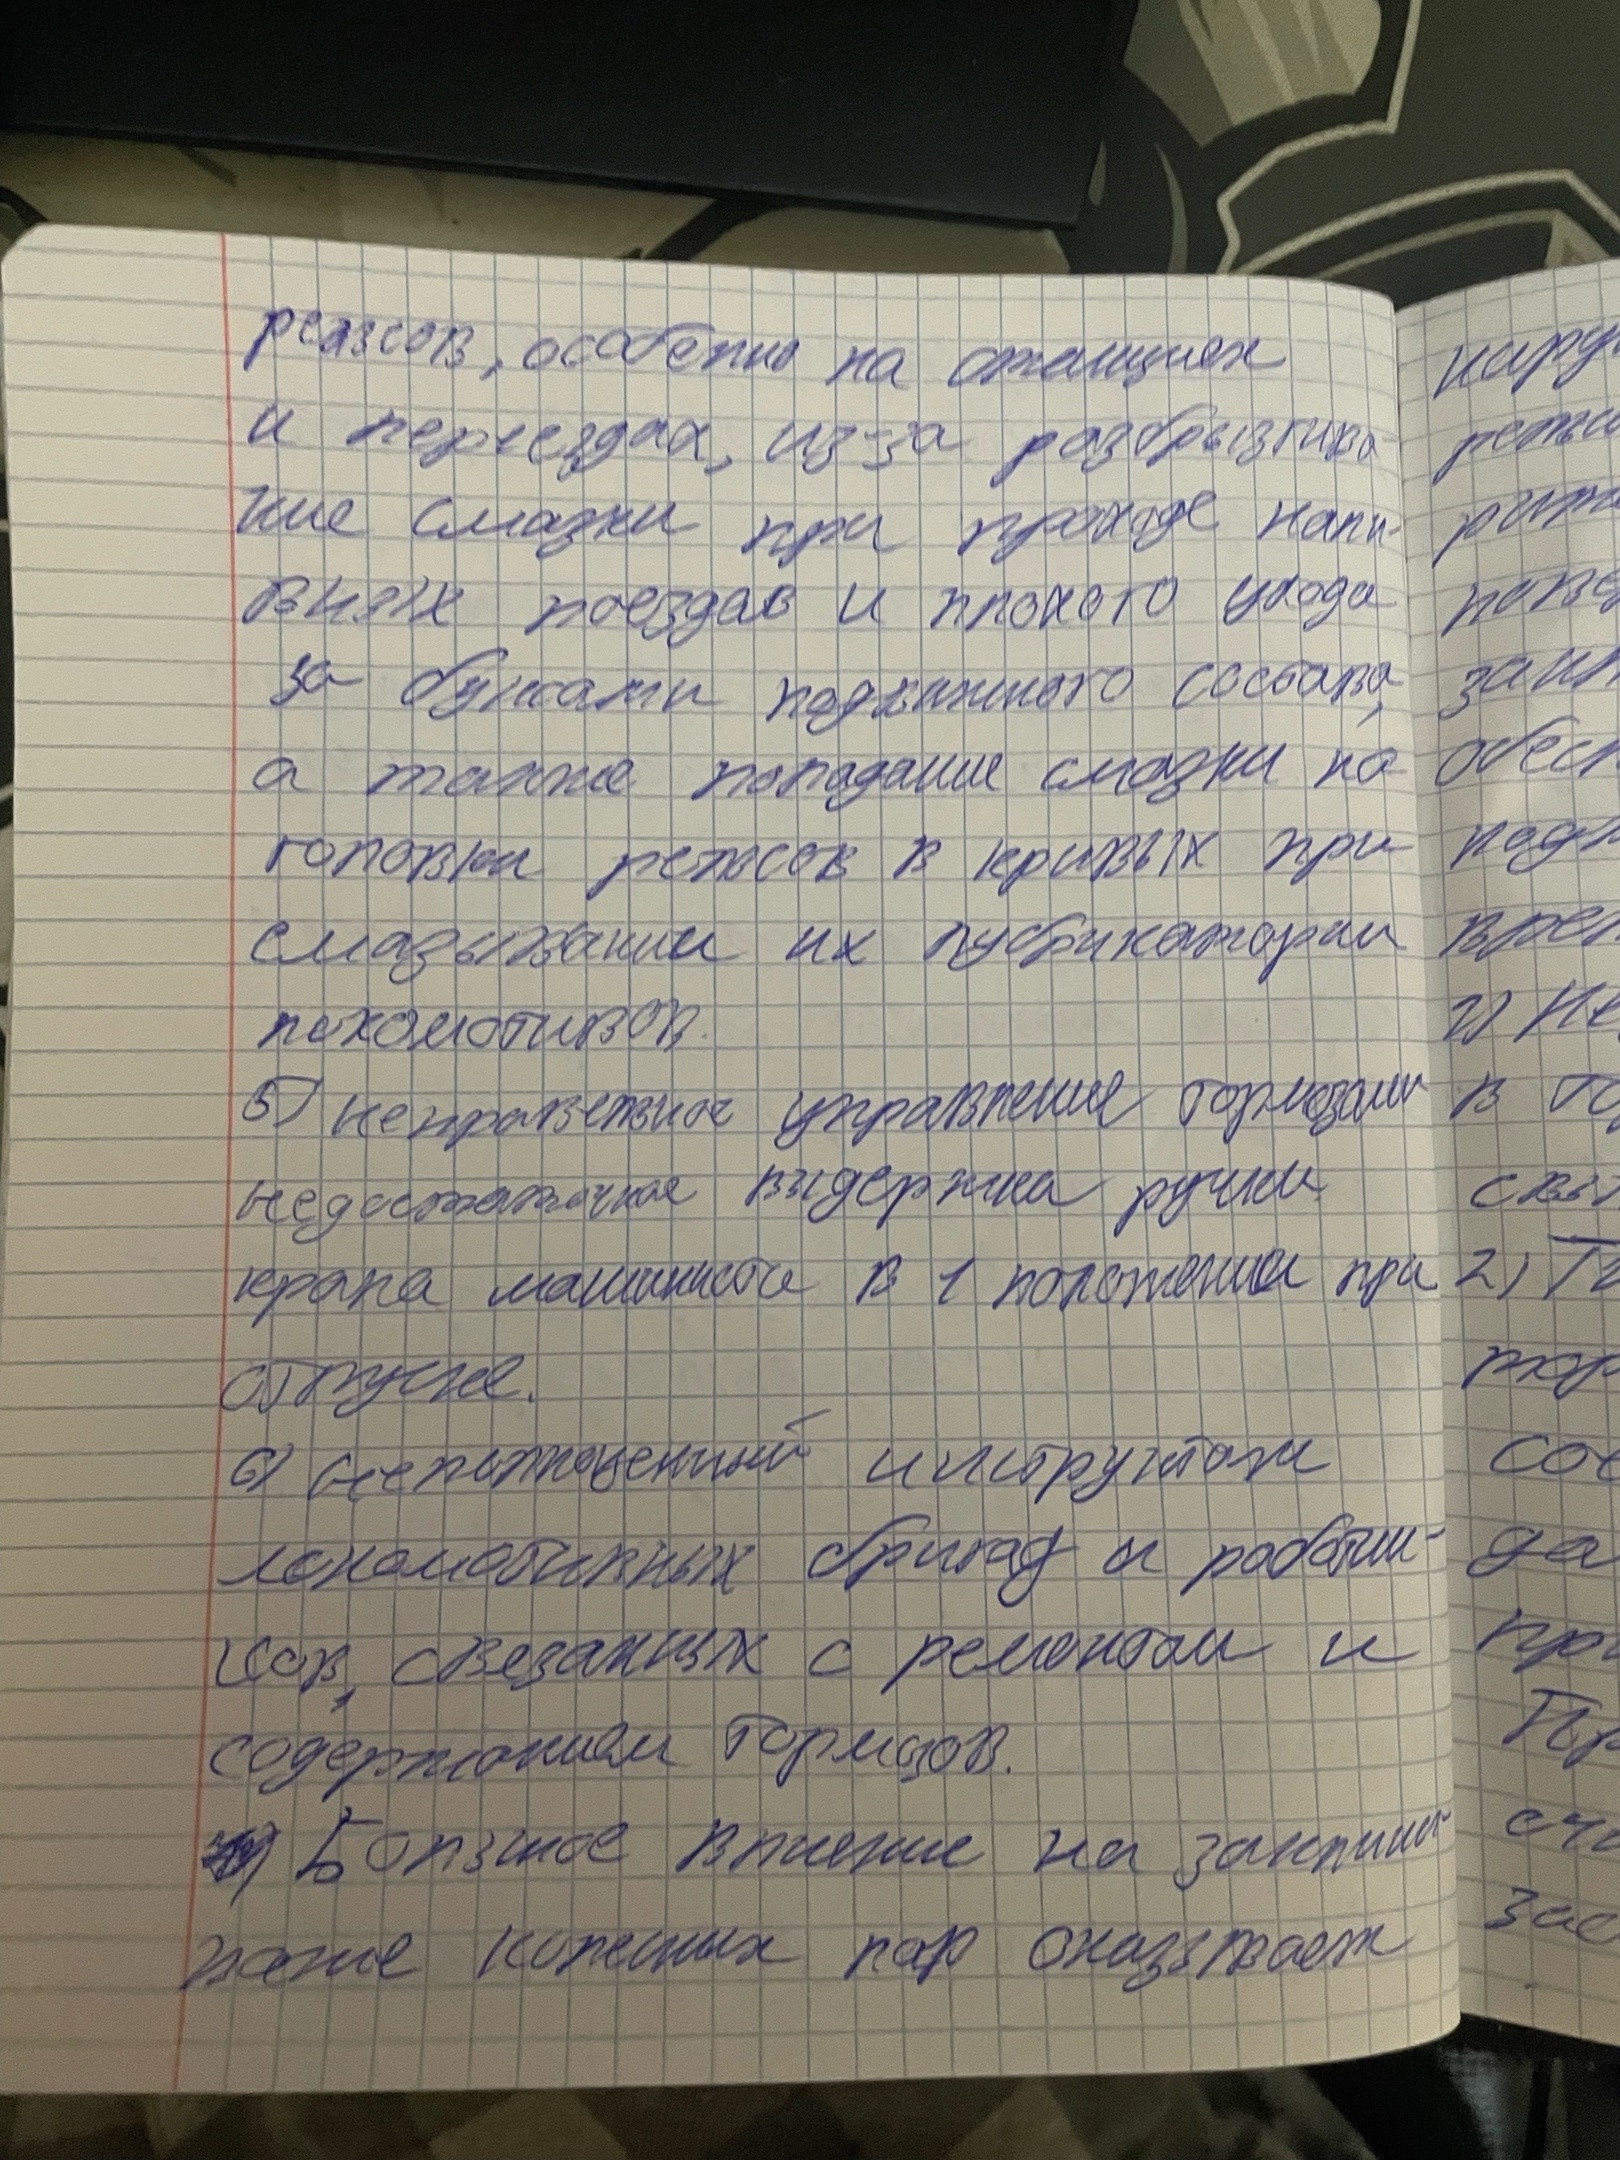 рельсов, особенно на станциях
и переездах, из-за разбрызгива-
ние смазки при проходе нали-
вных поездов и плохого ухода
за буксами подвижного состава,
а также попадание смазки на
головки рельсов в кривых при
смазывании их лубрикаторами
локомотивов.
5) неправельное управление тормозами
недостаточная выдержка ручки
крана машиниста в 1 положении при
отпуске.
6) неполноценный инструктаж
локомотивных бригад и работни-
ков, связанных с ремонтом и
содержанием тормозов.
Большое влияние на заклини-
вание колесных пар оказывает
1) Не
в то
2)
сое
да
пр
Пр